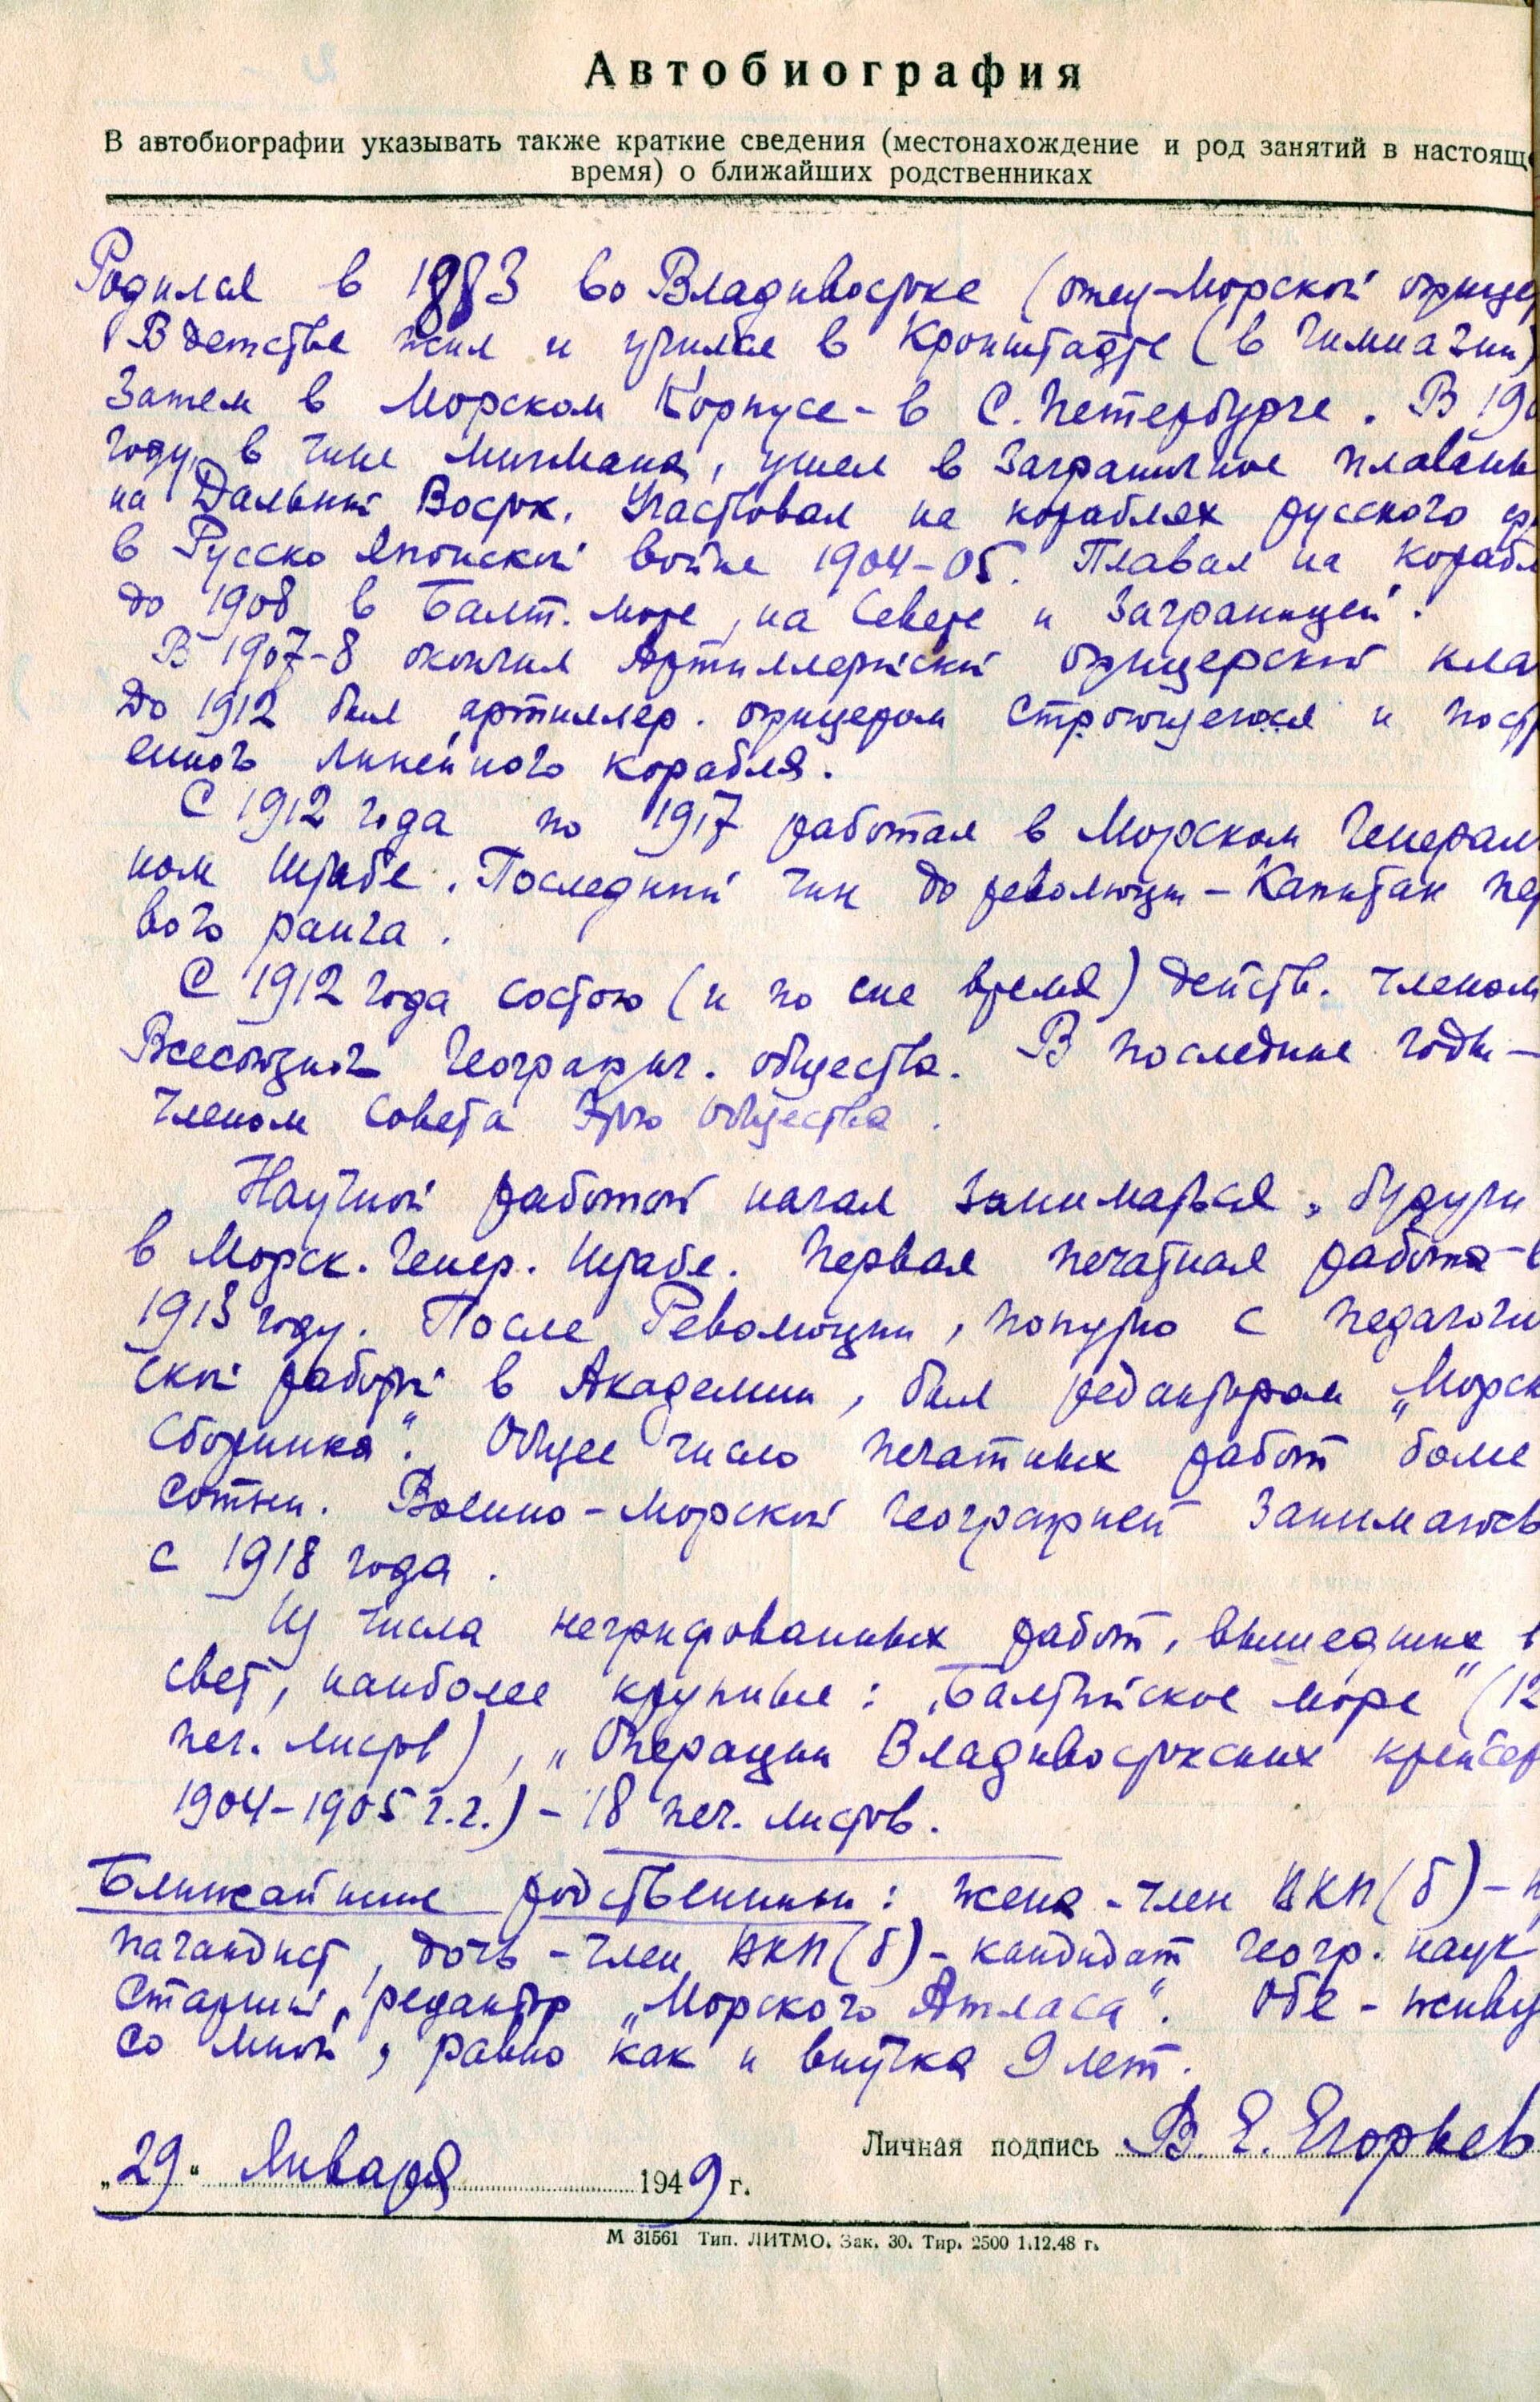 Автобиография
В автобиографии указывать также краткие сведения (местонахождение и род занятий в настоящ
время) о ближайших родственниках
Родился в 1883 во Владивостоке (отец-морской офицер
В детстве жил и учился в Кронштадте (в гимназии)
Затем в Морском Корпусе - в С. Петербурге. В 190
году, в чине мичмана, ушел в заграничное плавань
на Дальний Восток. Участвовал на кораблях русского ф
в Русско Японской войне 1904-05. Плавал на корабл
до 1908 в Балт. море, на Севере и заграницей.
В 1907-8 окончил Артиллерийский офицерский кла
До 1912 был артиллер. офицером строющегося и постр
енного линейного корабля.
С 1912 года по 1917 работал в Морском Генерал
ном Штабе. Последний чин до революции - Капитан пер
вого ранга.
С 1912 года состою (и по сие время) действ. членом
Всесоюзного Географич. общества. В последние годы -
членом Совета этого общества.
Научной работой начал заниматься, будучи
в Морск. Генер. Штабе. Первая печатная работа - в
1913 году. После Революции, попутно с педагоги
ской работой в Академии, был редактором „Морск
Сборника". Общее число печатных работ более
сотни. Военно-морской географией занимаюсь
с 1918 года.
Из числа негрифованных работ, вышедших в
свет, наиболее крупные: „Балтийское море" (12
печ. листов), „Операции Владивостокских крейсер
1904-1905 г.г.) - 18 печ. листов.
Ближайшие родственники: жена - член ВКП(б) - п
пагандист, дочь - член ВКП(б) - кандидат геогр. наук
Старший редактор „Морского Атласа". Обе - живу
со мной, равно как и внучка 9 лет.
Личная подпись В. Е. Егорьев
„29" Января 1949 г.
М 31561 Тип. ЛИТМО. Зак. 30. Тир. 2500 1.12.48 г.